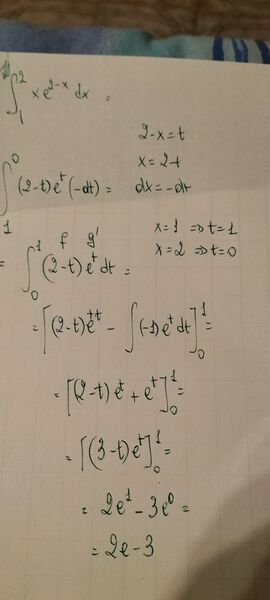 ∫₁² x e^{2-x} dx =
2-x=t
x=2-t
∫₁⁰ (2-t)e^t (-dt) = dx=-dt
x=1 ⇒ t=1
x=2 ⇒ t=0
f g'
= ∫₀¹ (2-t)e^t dt =
= [(2-t)e^t - ∫(-1)e^t dt]₀¹ =
= [(2-t)e^t + e^t]₀¹ =
= [(3-t)e^t]₀¹ =
= 2e¹ - 3e⁰ =
= 2e - 3